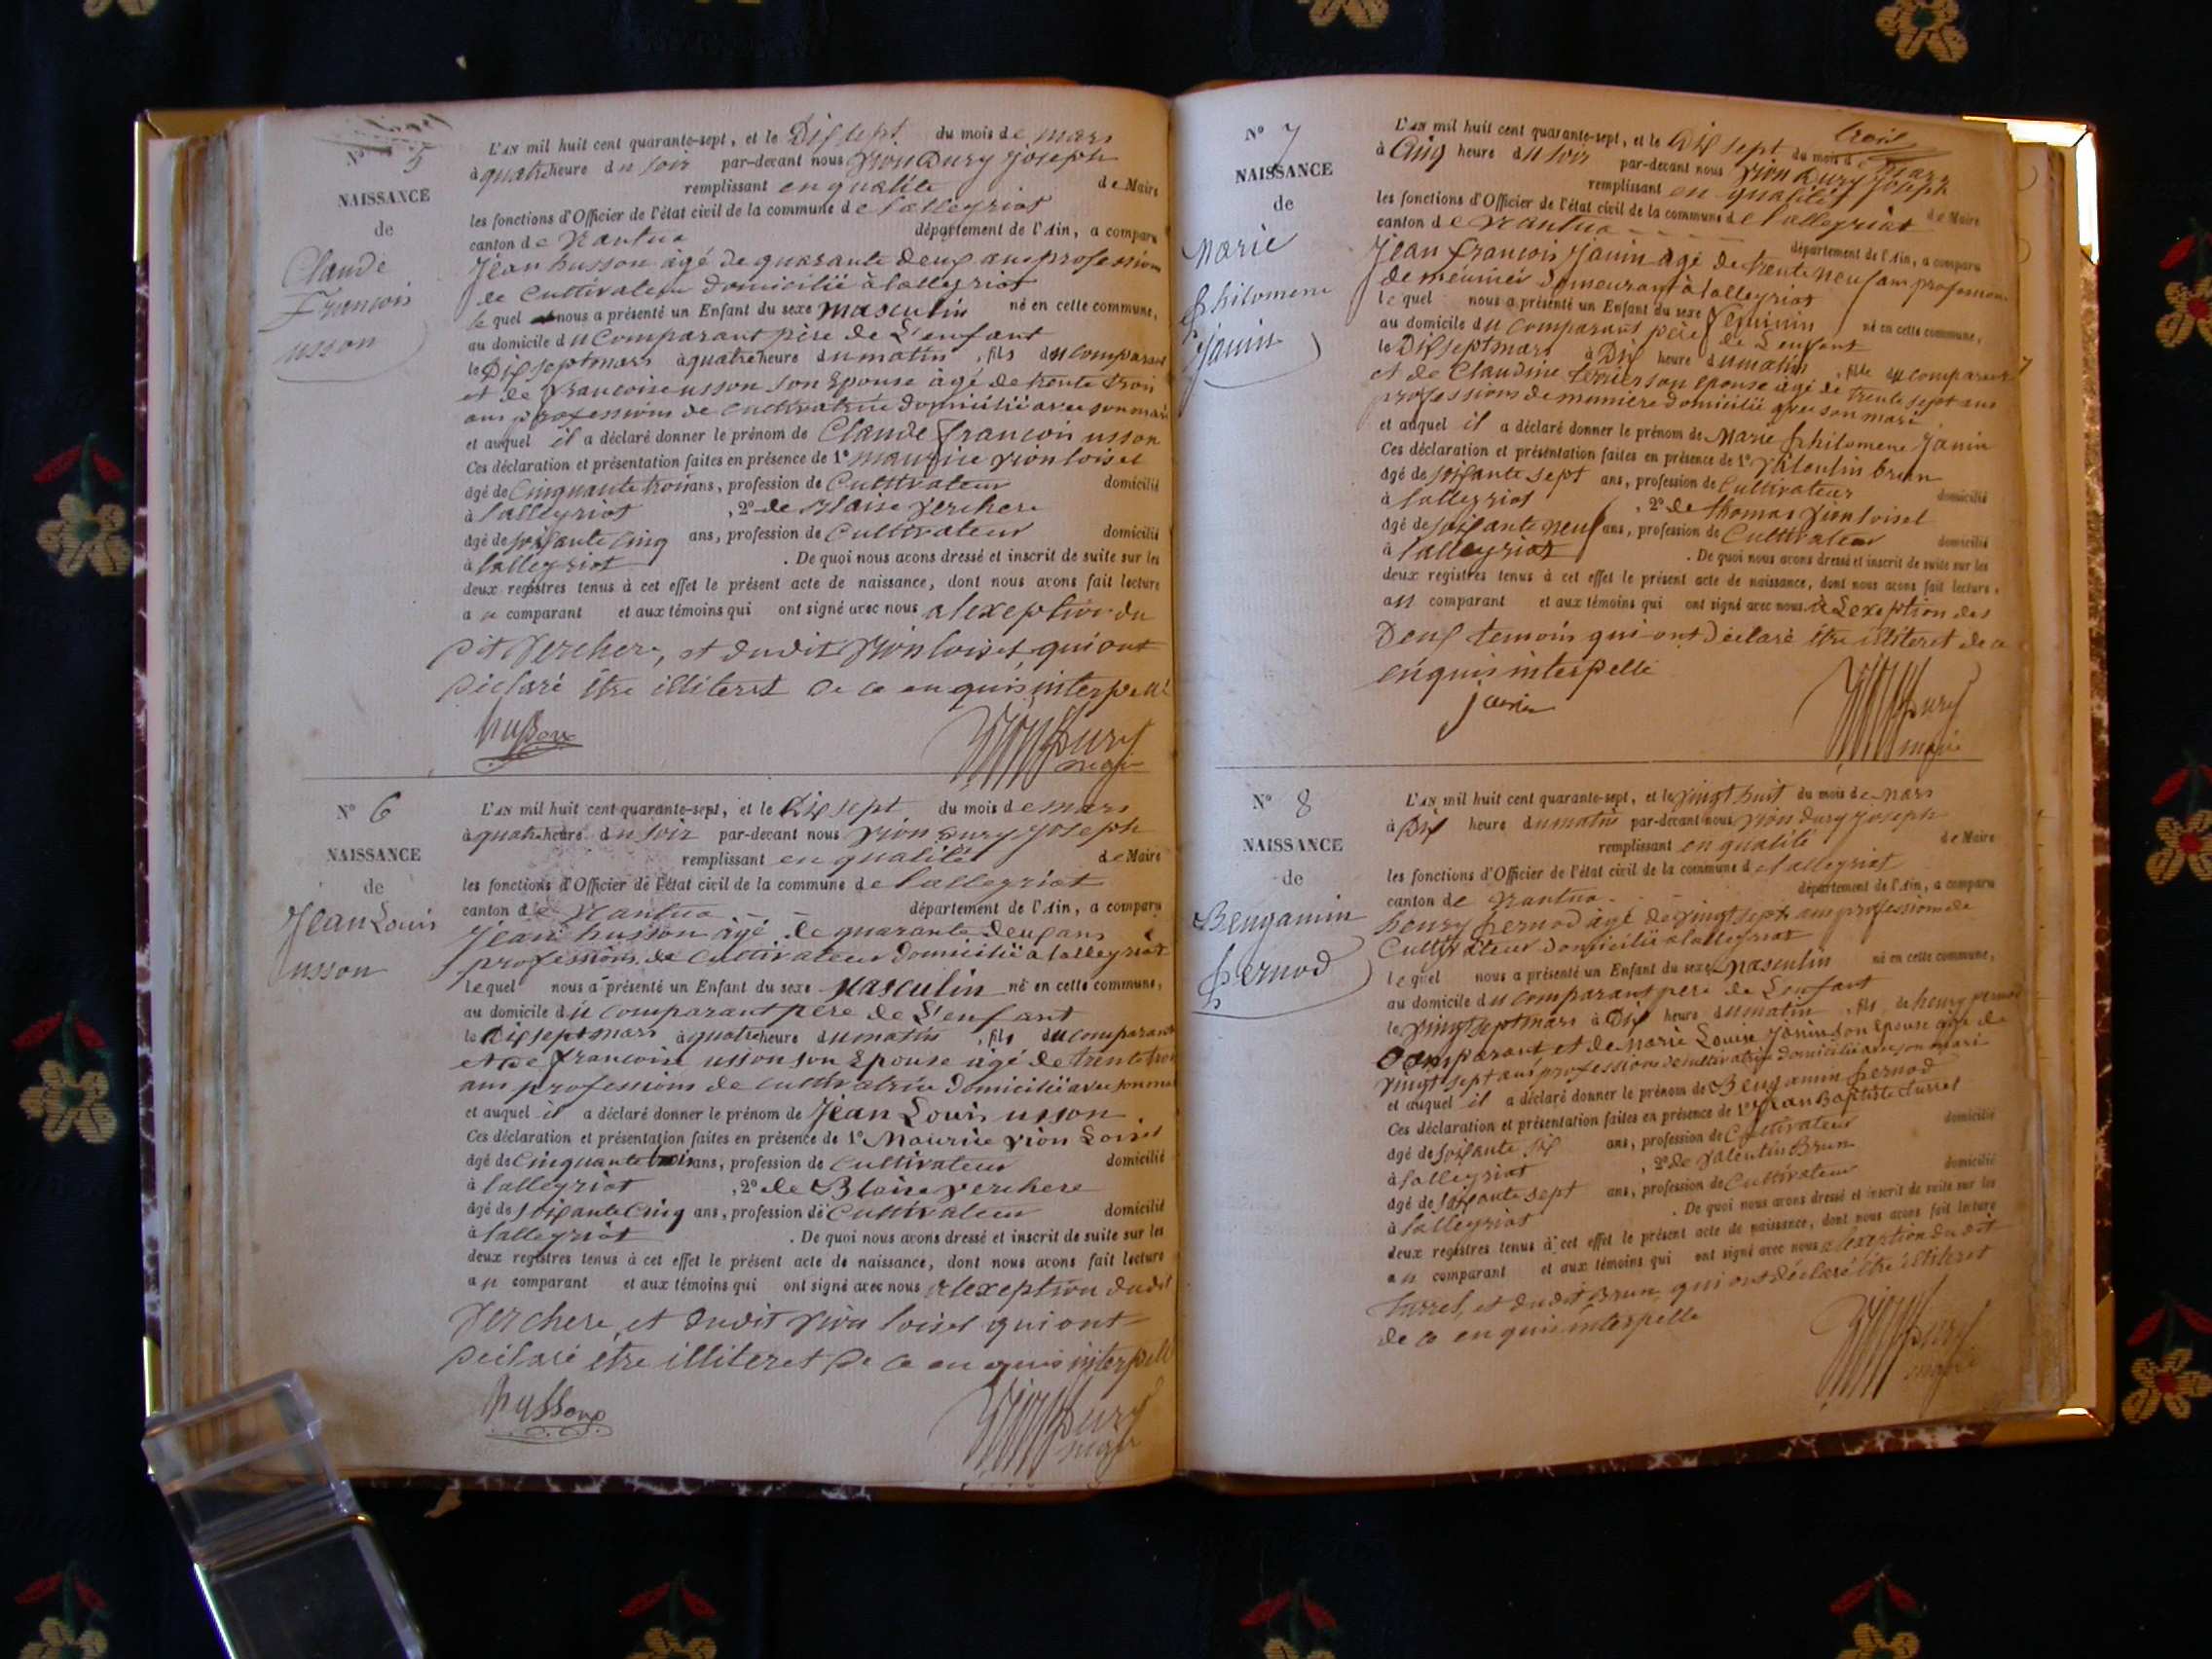 N° 5
NAISSANCE
de
Claude
François
usson
L'AN mil huit cent quarante-sept, et le Dix sept du mois de mars
à quatre heure du soir par-devant nous vion Dury joseph
remplissant en qualité de Maire
les fonctions d'Officier de l'état civil de la commune de lalleyriat
canton de Nantua département de l'Ain, a comparu
Jean husson agé de quarante deux ans profession
de Cultivateur domicilié à lalleyriat
le quel nous a présenté un Enfant du sexe masculin né en cette commune,
au domicile du comparant père de L'enfant
le Dix sept mars à quatre heure du matin, fils du comparant
et de francoise usson son Epouse agé de trente trois
ans professions de cultivatrice domicilié avec son mari
et auquel il a déclaré donner le prénom de Claude francois usson
Ces déclaration et présentation faites en présence de 1° maurice vion loisel
âgé de Cinquante trois ans, profession de Cultivateur domicilié
à lalleyriat, 2° de Blaise Verchere
âgé de soixante Cinq ans, profession de Cultivateur domicilié
à lalleyriat. De quoi nous avons dressé et inscrit de suite sur les
deux registres tenus à cet effet le présent acte de naissance, dont nous avons fait lecture
au comparant et aux témoins qui ont signé avec nous alexeption du
dit Verchere, et dudit vion loisel, qui ont
déclaré être illiteret de ce en quis interpellé
husson
vion Dury
N° 6
NAISSANCE
de
Jean Louis
usson
L'AN mil huit cent quarante-sept, et le Dix sept du mois de mars
à quatre heure du soir par-devant nous vion Dury joseph
remplissant en qualité de Maire
les fonctions d'Officier de l'état civil de la commune de lalleyriat
canton de Nantua département de l'Ain, a comparu
Jean husson agé de quarante deux ans
professions de Cultivateur domicilié à lalleyriat
le quel nous a présenté un Enfant du sexe Masculin né en cette commune,
au domicile du comparant père de L'enfant
le Dix sept mars à quatre heure du matin, fils du comparant
et de francoise usson son Epouse agé de trente trois
ans professions de cultivatrice domicilié avec son mari
et auquel il a déclaré donner le prénom de Jean Louis usson
Ces déclaration et présentation faites en présence de 1° Maurice vion Loisel
âgé de Cinquante trois ans, profession de Cultivateur domicilié
à lalleyriat, 2° de Blaise verchere
âgé de soixante Cinq ans, profession de Cultivateur domicilié
à lalleyriat. De quoi nous avons dressé et inscrit de suite sur les
deux registres tenus à cet effet le présent acte de naissance, dont nous avons fait lecture
au comparant et aux témoins qui ont signé avec nous alexeption dudit
Verchere, et dudit vion loisel qui ont
déclaré être illiteret de ce en quis interpellé
husson
vion Dury
trois
N° 7
NAISSANCE
de
Marie
philomene
janin
L'AN mil huit cent quarante-sept, et le Dix sept du mois de Mars
à Cinq heure du soir par-devant nous vion Dury joseph
remplissant en qualité de Maire
les fonctions d'Officier de l'état civil de la commune de lalleyriat
canton de Nantua département de l'Ain, a comparu
Jean francois janin agé de trente neuf ans profession
de meunier demeurant à lalleyriat
le quel nous a présenté un Enfant du sexe feminin né en cette commune,
au domicile du comparant père de L'enfant
le Dix sept mars à Dix heure du matin, fille du comparant
et de Claudine son epouse agé de trente sept ans
professions de meuniere domicilié avec son mari
et auquel il a déclaré donner le prénom de Marie philomene janin
Ces déclaration et présentation faites en présence de 1° Valentin brun
âgé de soixante sept ans, profession de Cultivateur domicilié
à lalleyriat, 2° de thomas vion loisel
âgé de soixante neuf ans, profession de Cultivateur domicilié
à lalleyriat. De quoi nous avons dressé et inscrit de suite sur les
deux registres tenus à cet effet le présent acte de naissance, dont nous avons fait lecture,
au comparant et aux témoins qui ont signé avec nous à Lexeption des
deux temoins qui ont déclaré être illiteret de ce
enquis interpellé
janin
vion Dury
maire
N° 8
NAISSANCE
de
Bengamin
pernod
L'AN mil huit cent quarante-sept, et le vingt huit du mois de mars
à Dix heure du matin par-devant nous vion Dury joseph
remplissant en qualité de Maire
les fonctions d'Officier de l'état civil de la commune de lalleyriat
canton de Nantua département de l'Ain, a comparu
henry pernod agé de vingt sept ans profession de
Cultivateur domicilié à lalleyriat
le quel nous a présenté un Enfant du sexe Masculin né en cette commune,
au domicile du comparant père de Lenfant
le vingt sept mars à Dix heure du matin, fils de henry pernod
Comparant et de Marie Louise son Epouse agé de
vingt sept ans profession de cultivatrice domicilié avec son mari
et auquel il a déclaré donner le prénom de Bengamin pernod
Ces déclaration et présentation faites en présence de 1° Jean Baptiste turrel
âgé de soixante six ans, profession de Cultivateur domicilié
à lalleyriat, 2° de Valentin Brun
âgé de soixante sept ans, profession de Cultivateur domicilié
à lalleyriat. De quoi nous avons dressé et inscrit de suite sur les
deux registres tenus à cet effet le présent acte de naissance, dont nous avons fait lecture
au comparant et aux témoins qui ont signé avec nous alexeption du dit
turrel, et dudit Brun, qui ont déclaré être illiteret
de ce en quis interpellé
vion Dury
maire